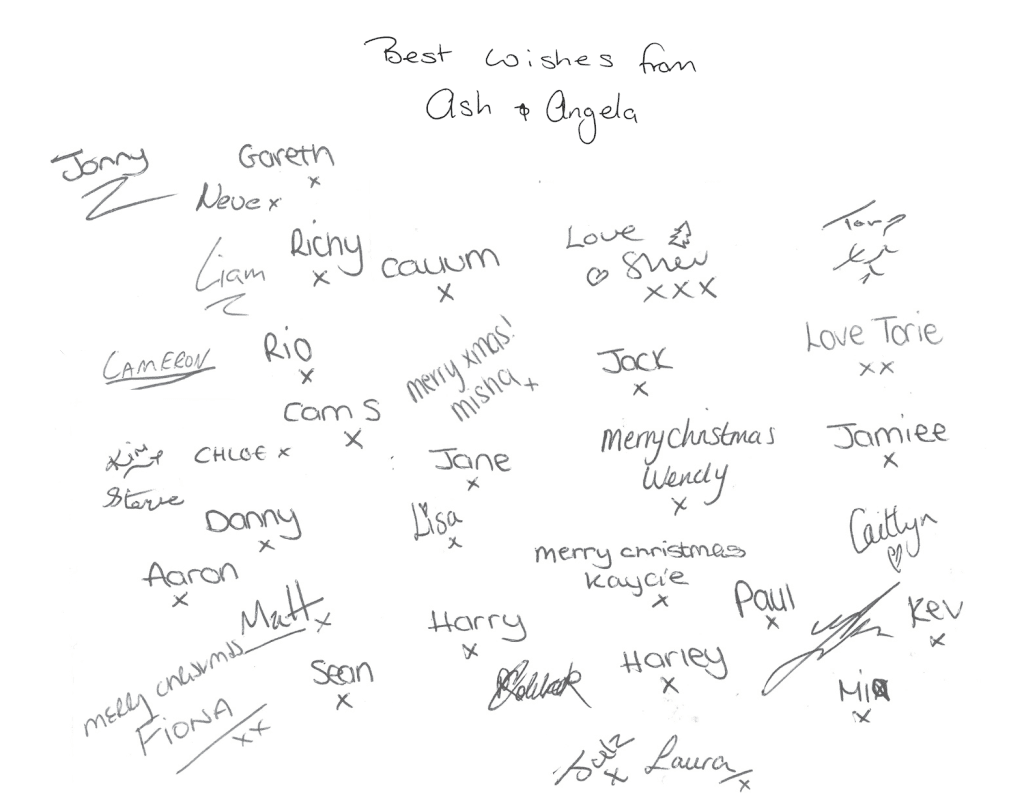 Best wishes from
Ash & Angela
Jonny
Gareth
x
Neve x
Richy
x
Liam
Callum
x
Love
Shev
xxx
CAMERON
Rio
x
merry xmas!
misha +
Jack
x
Love Torie
xx
Cam S
x
CHLOE x
Steve
Jane
x
merry christmas
Wendy
x
Jamiee
x
Danny
x
Lisa
x
Caitlyn
merry christmas
Kaycie
x
Aaron
x
Matt
x
Harry
x
Paul
x
Kev
x
merry christmas
FIONA
xx
Sean
x
Harley
x
Mia
x
Laura
x